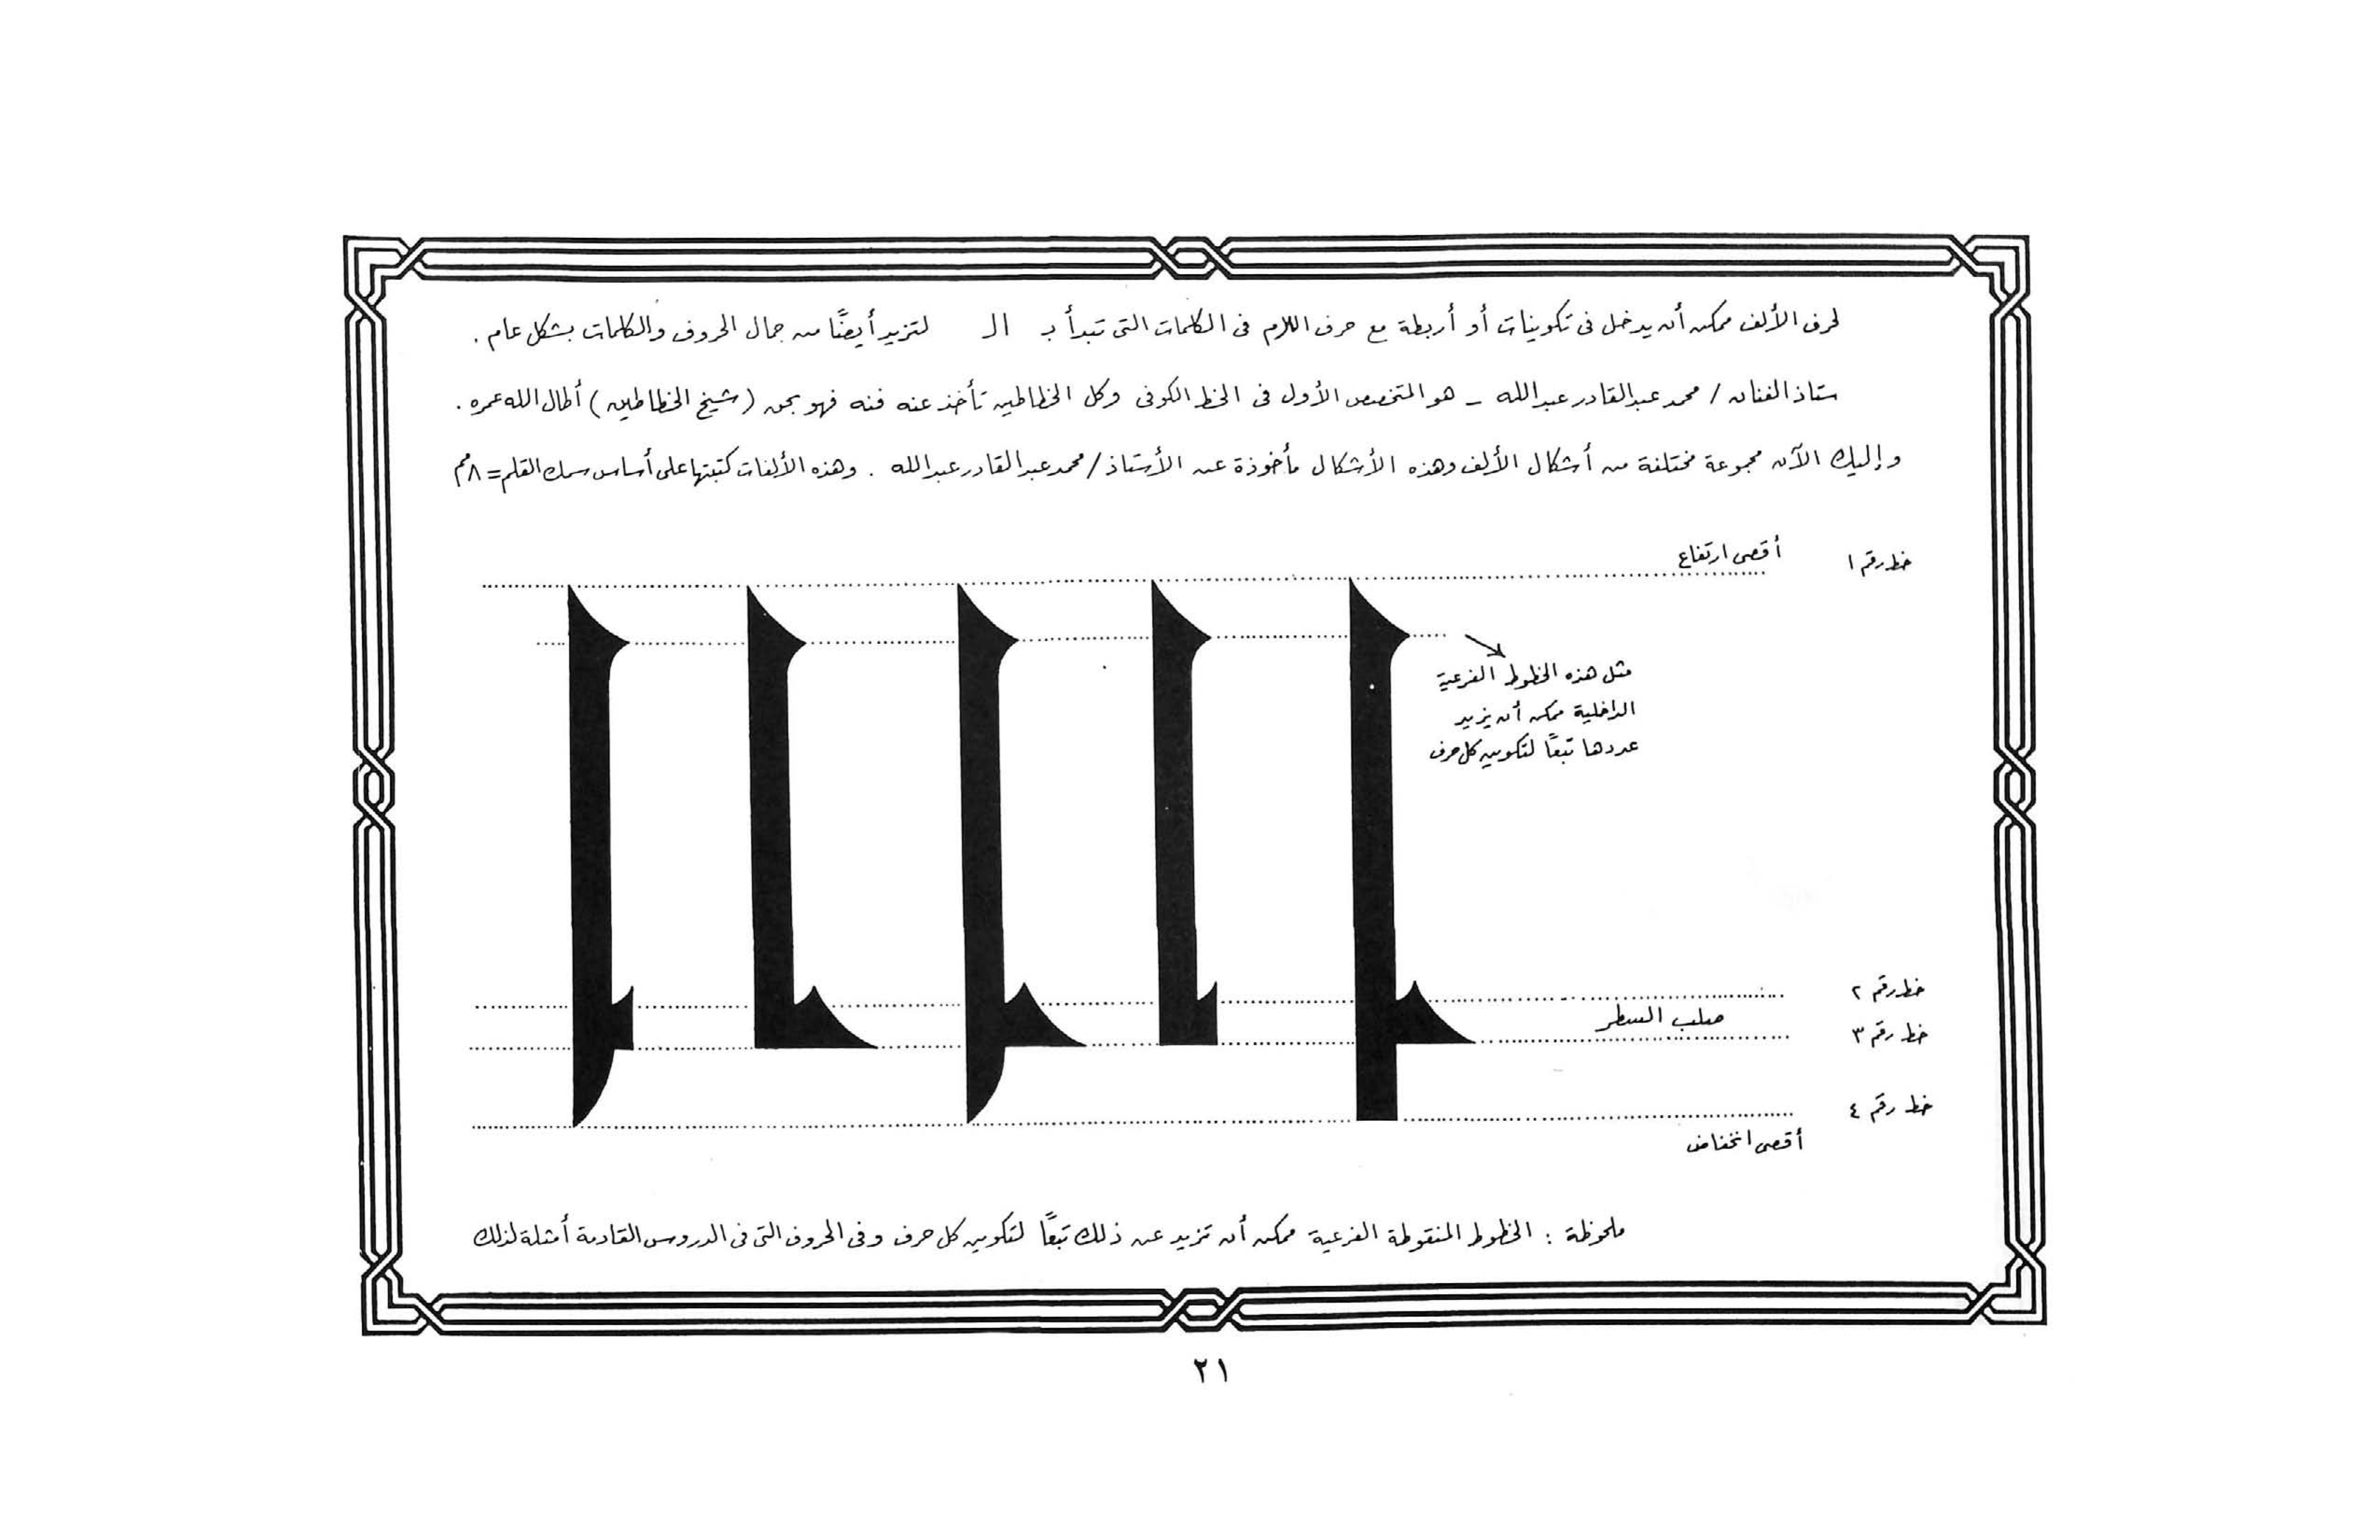 لحرف الألف ممكن أن يدخل فى تكوينات أو أربطة مع حرف اللام فى الكلمات التى تبدأ بـ الـ لتزيد أيضًا من جمال الحروف والكلمات بشكل عام .
ستاذ الفنان / محمد عبد القادر عبد الله - هو المتخصص الأول فى الخط الكوفى وكل الخطاطين تأخذ عنه فنه فهو بحق (شيخ الخطاطين) أطال الله عمره .
وإليك الآن مجموعة مختلفة من أشكال الألف وهذه الأشكال مأخوذة عن الأستاذ / محمد عبد القادر عبد الله . وهذه الألفات كتبتها على أساس سمك القلم = ٨مم
خط رقم ١
أقصى ارتفاع
مثل هذه الخطوط الفرعية
الداخلية ممكن أن يزيد
عددها تبعًا لتكوين كل حرف
خط رقم ٢
صلب السطر
خط رقم ٣
خط رقم ٤
أقصى انخفاض
ملحوظة : الخطوط المنقوطة الفرعية ممكن أن تزيد عن ذلك تبعًا لتكوين كل حرف وفى الحروف التى فى الدروس القادمة أمثلة لذلك
٢١